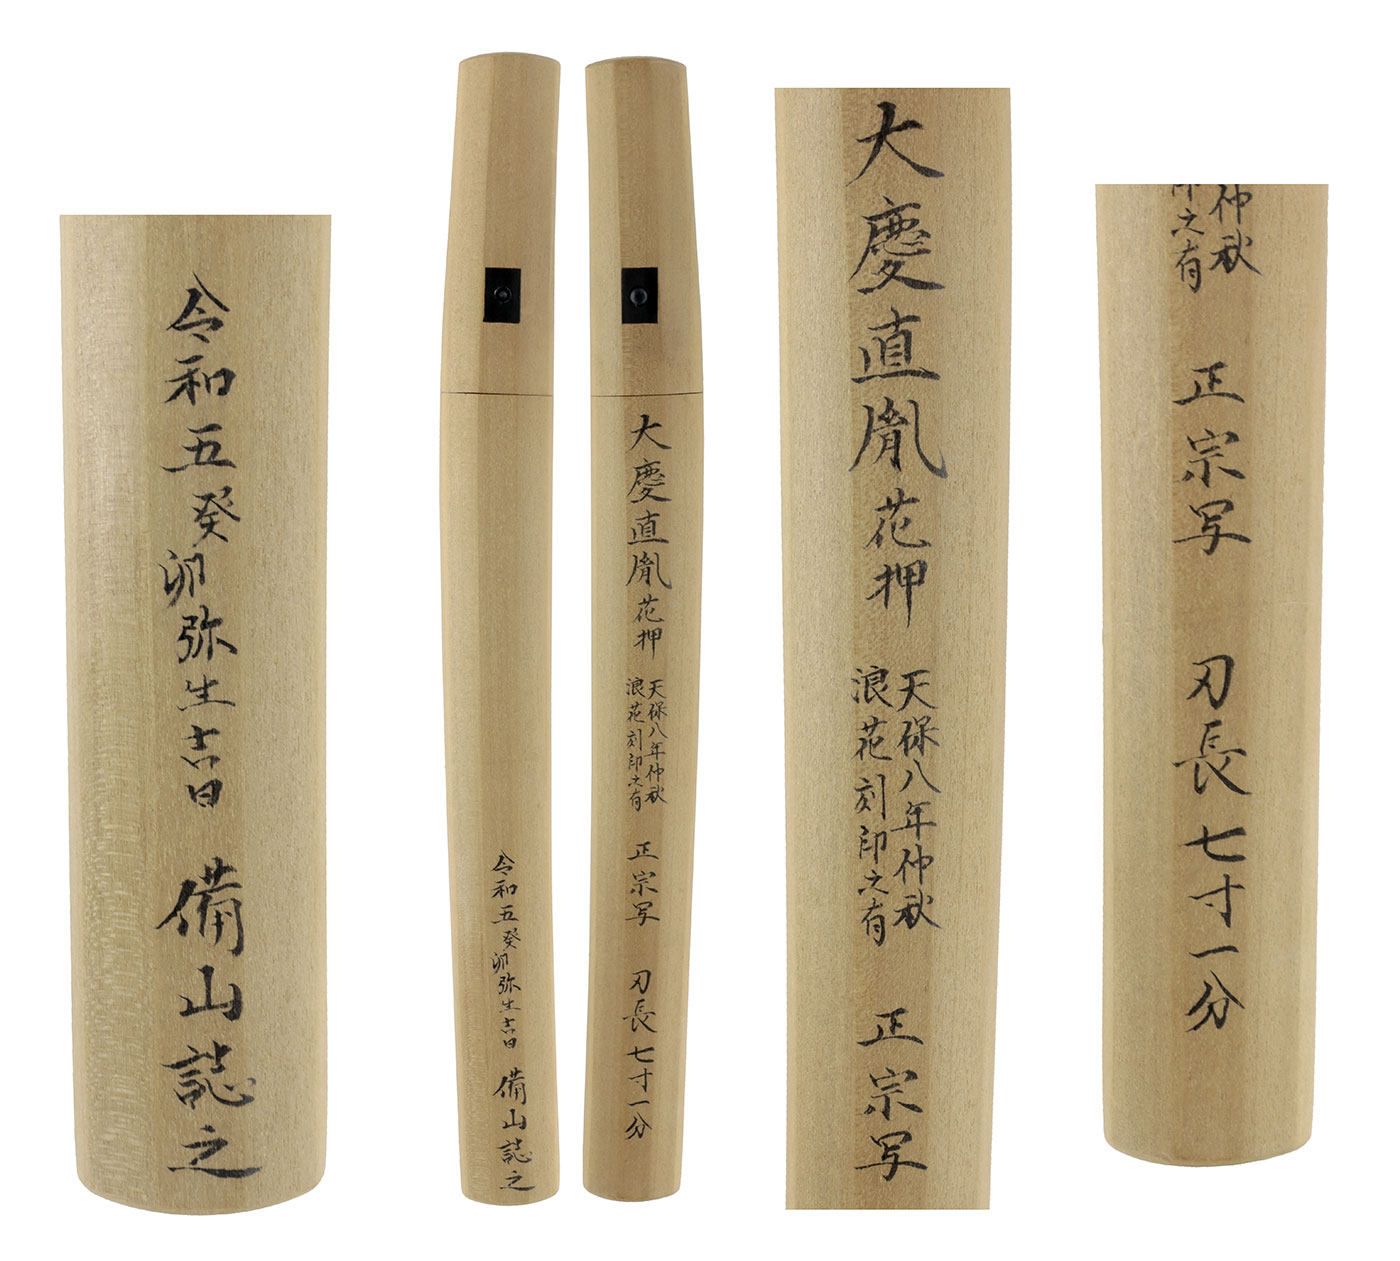 令和五癸卯弥生吉日 備山誌之
令和五癸卯弥生吉日 備山誌之
大慶直胤花押
天保八年仲秋
浪花刻印之有
正宗写 刃長七寸一分
大慶直胤花押
天保八年仲秋
浪花刻印之有
正宗写
仲秋
印之有
正宗写 刃長七寸一分